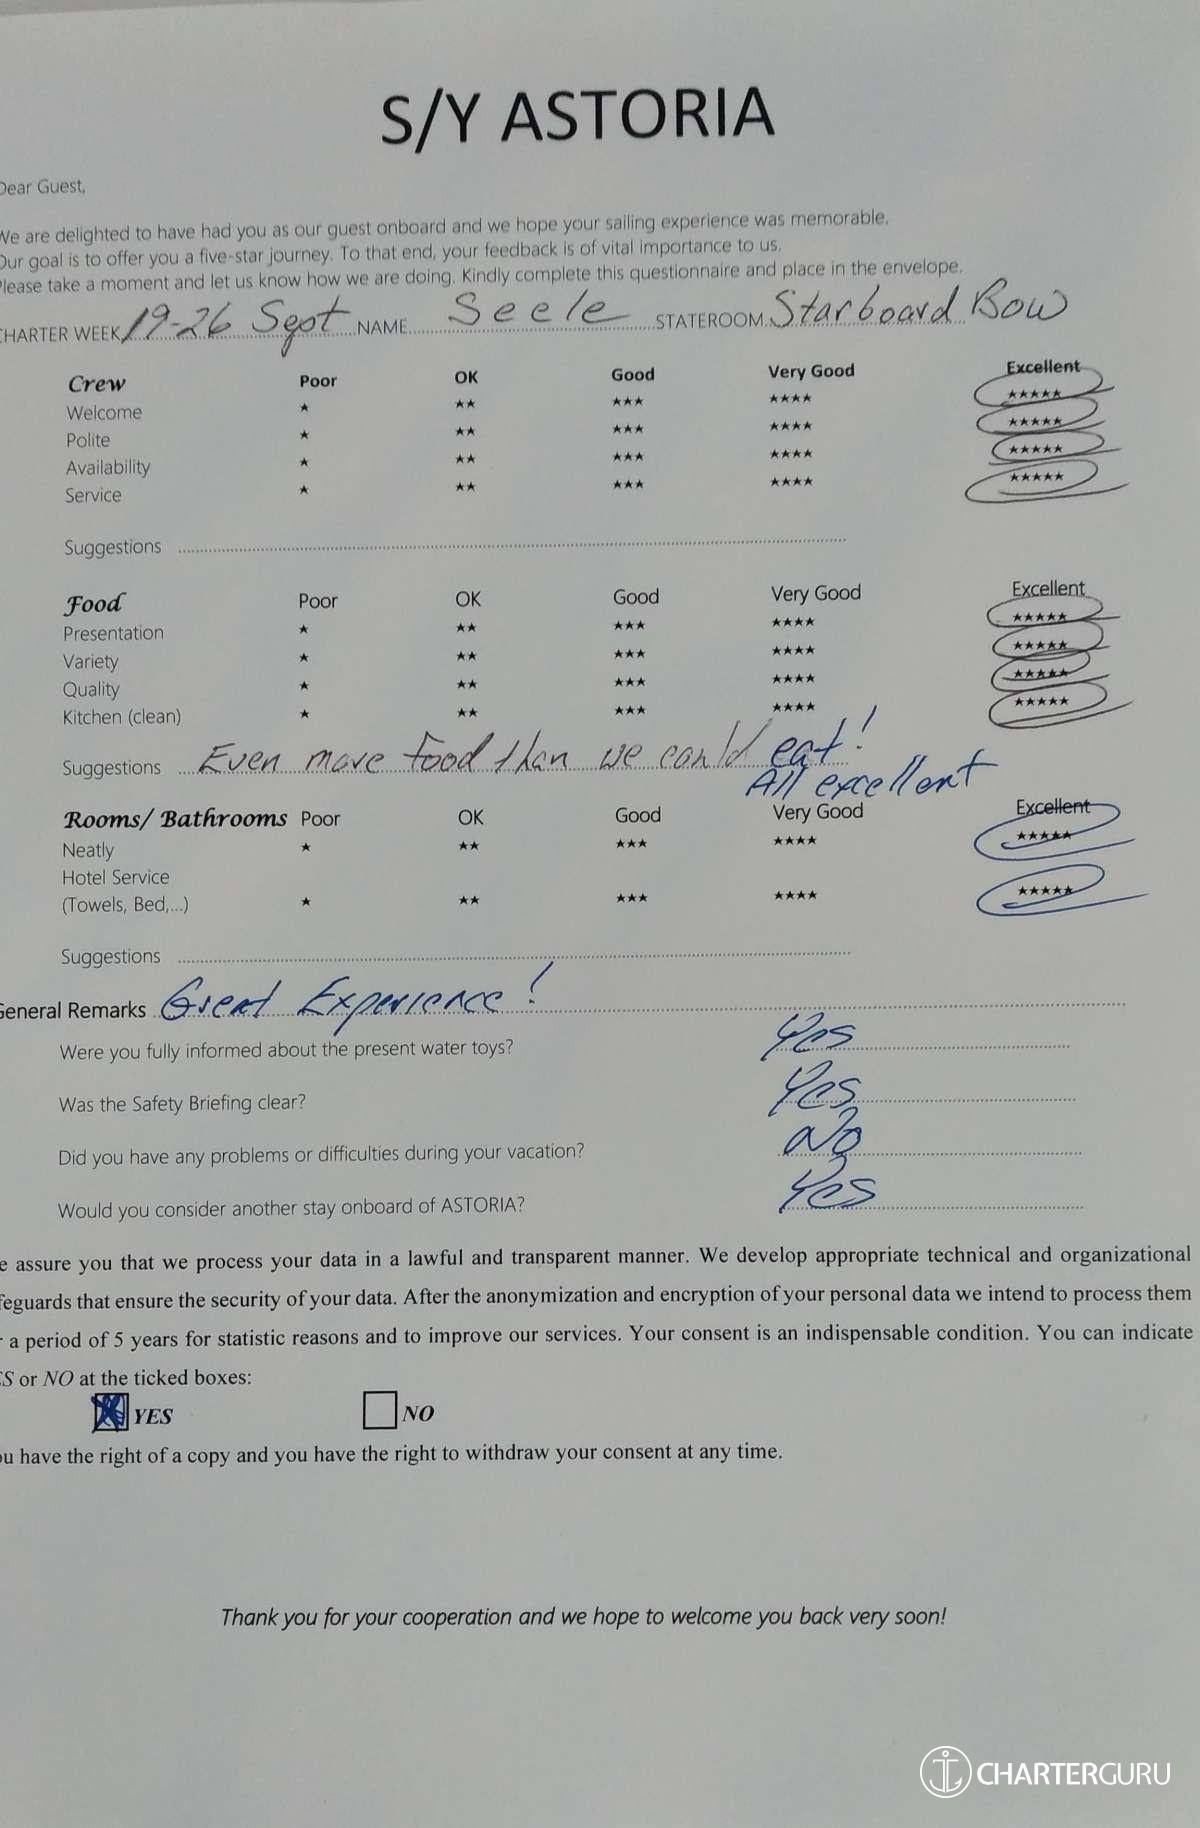 S/Y ASTORIA
Dear Guest,
We are delighted to have had you as our guest onboard and we hope your sailing experience was memorable.
Our goal is to offer you a five-star journey. To that end, your feedback is of vital importance to us.
Please take a moment and let us know how we are doing. Kindly complete this questionnaire and place in the envelope.
CHARTER WEEK 19-26 Sept NAME Seele STATEROOM Starboard Bow
Crew Poor OK Good Very Good Excellent
Welcome ★ ★★ ★★★ ★★★★ ★★★★★
Polite ★ ★★ ★★★ ★★★★ ★★★★★
Availability ★ ★★ ★★★ ★★★★ ★★★★★
Service ★ ★★ ★★★ ★★★★ ★★★★★
Suggestions
Food Poor OK Good Very Good Excellent
Presentation ★ ★★ ★★★ ★★★★ ★★★★★
Variety ★ ★★ ★★★ ★★★★ ★★★★★
Quality ★ ★★ ★★★ ★★★★ ★★★★★
Kitchen (clean) ★ ★★ ★★★ ★★★★ ★★★★★
Suggestions Even more food than we could eat!
All excellent
Rooms/ Bathrooms Poor OK Good Very Good Excellent
Neatly ★ ★★ ★★★ ★★★★ ★★★★★
Hotel Service
(Towels, Bed,...) ★ ★★ ★★★ ★★★★ ★★★★★
Suggestions
General Remarks Great Experience!
Were you fully informed about the present water toys? Yes
Was the Safety Briefing clear? Yes
Did you have any problems or difficulties during your vacation? No
Would you consider another stay onboard of ASTORIA? Yes
e assure you that we process your data in a lawful and transparent manner. We develop appropriate technical and organizational
feguards that ensure the security of your data. After the anonymization and encryption of your personal data we intend to process them
r a period of 5 years for statistic reasons and to improve our services. Your consent is an indispensable condition. You can indicate
ES or NO at the ticked boxes:
YES NO
ou have the right of a copy and you have the right to withdraw your consent at any time.
Thank you for your cooperation and we hope to welcome you back very soon!
CHARTERGURU